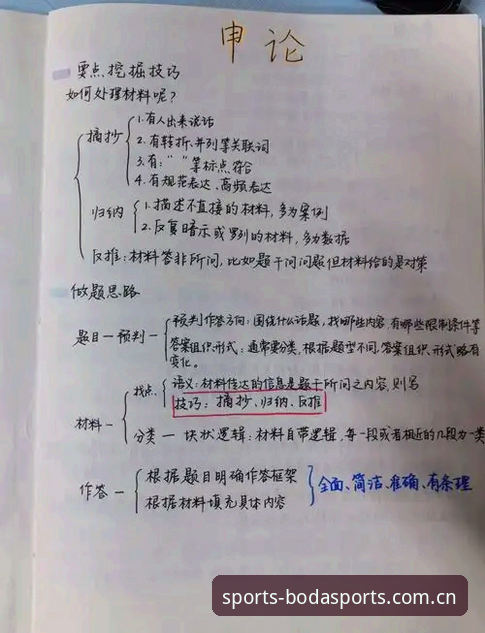 申论
要点挖掘技巧
如何处理材料呢？
摘抄
1.有人出来说话
2.有转折、并列等关联词
3.有：“ ”等标点符合
4.有规范表达、高频表达
归纳
1.描述不直接的材料，多为案例
2.反复暗示或罗列的材料，多为数据
反推：材料答非所问，比如题干问问题但材料给的是对策
做题思路
题目—预判—
预判作答方向：围绕什么话题，找哪些内容，有哪些限制条件等
答案组织形式：通常要分类，根据题型不同，答案组织形式略有
变化。
材料—
找点
语义：材料传达的信息是题干所问之内容，则写
技巧：摘抄、归纳、反推
分类—块状逻辑：材料自带逻辑，每一段或者相近的几段为一类
作答—
根据题目明确作答框架
根据材料填充具体内容
全面、简洁、准确、有条理
sports-bodasports.com.cn